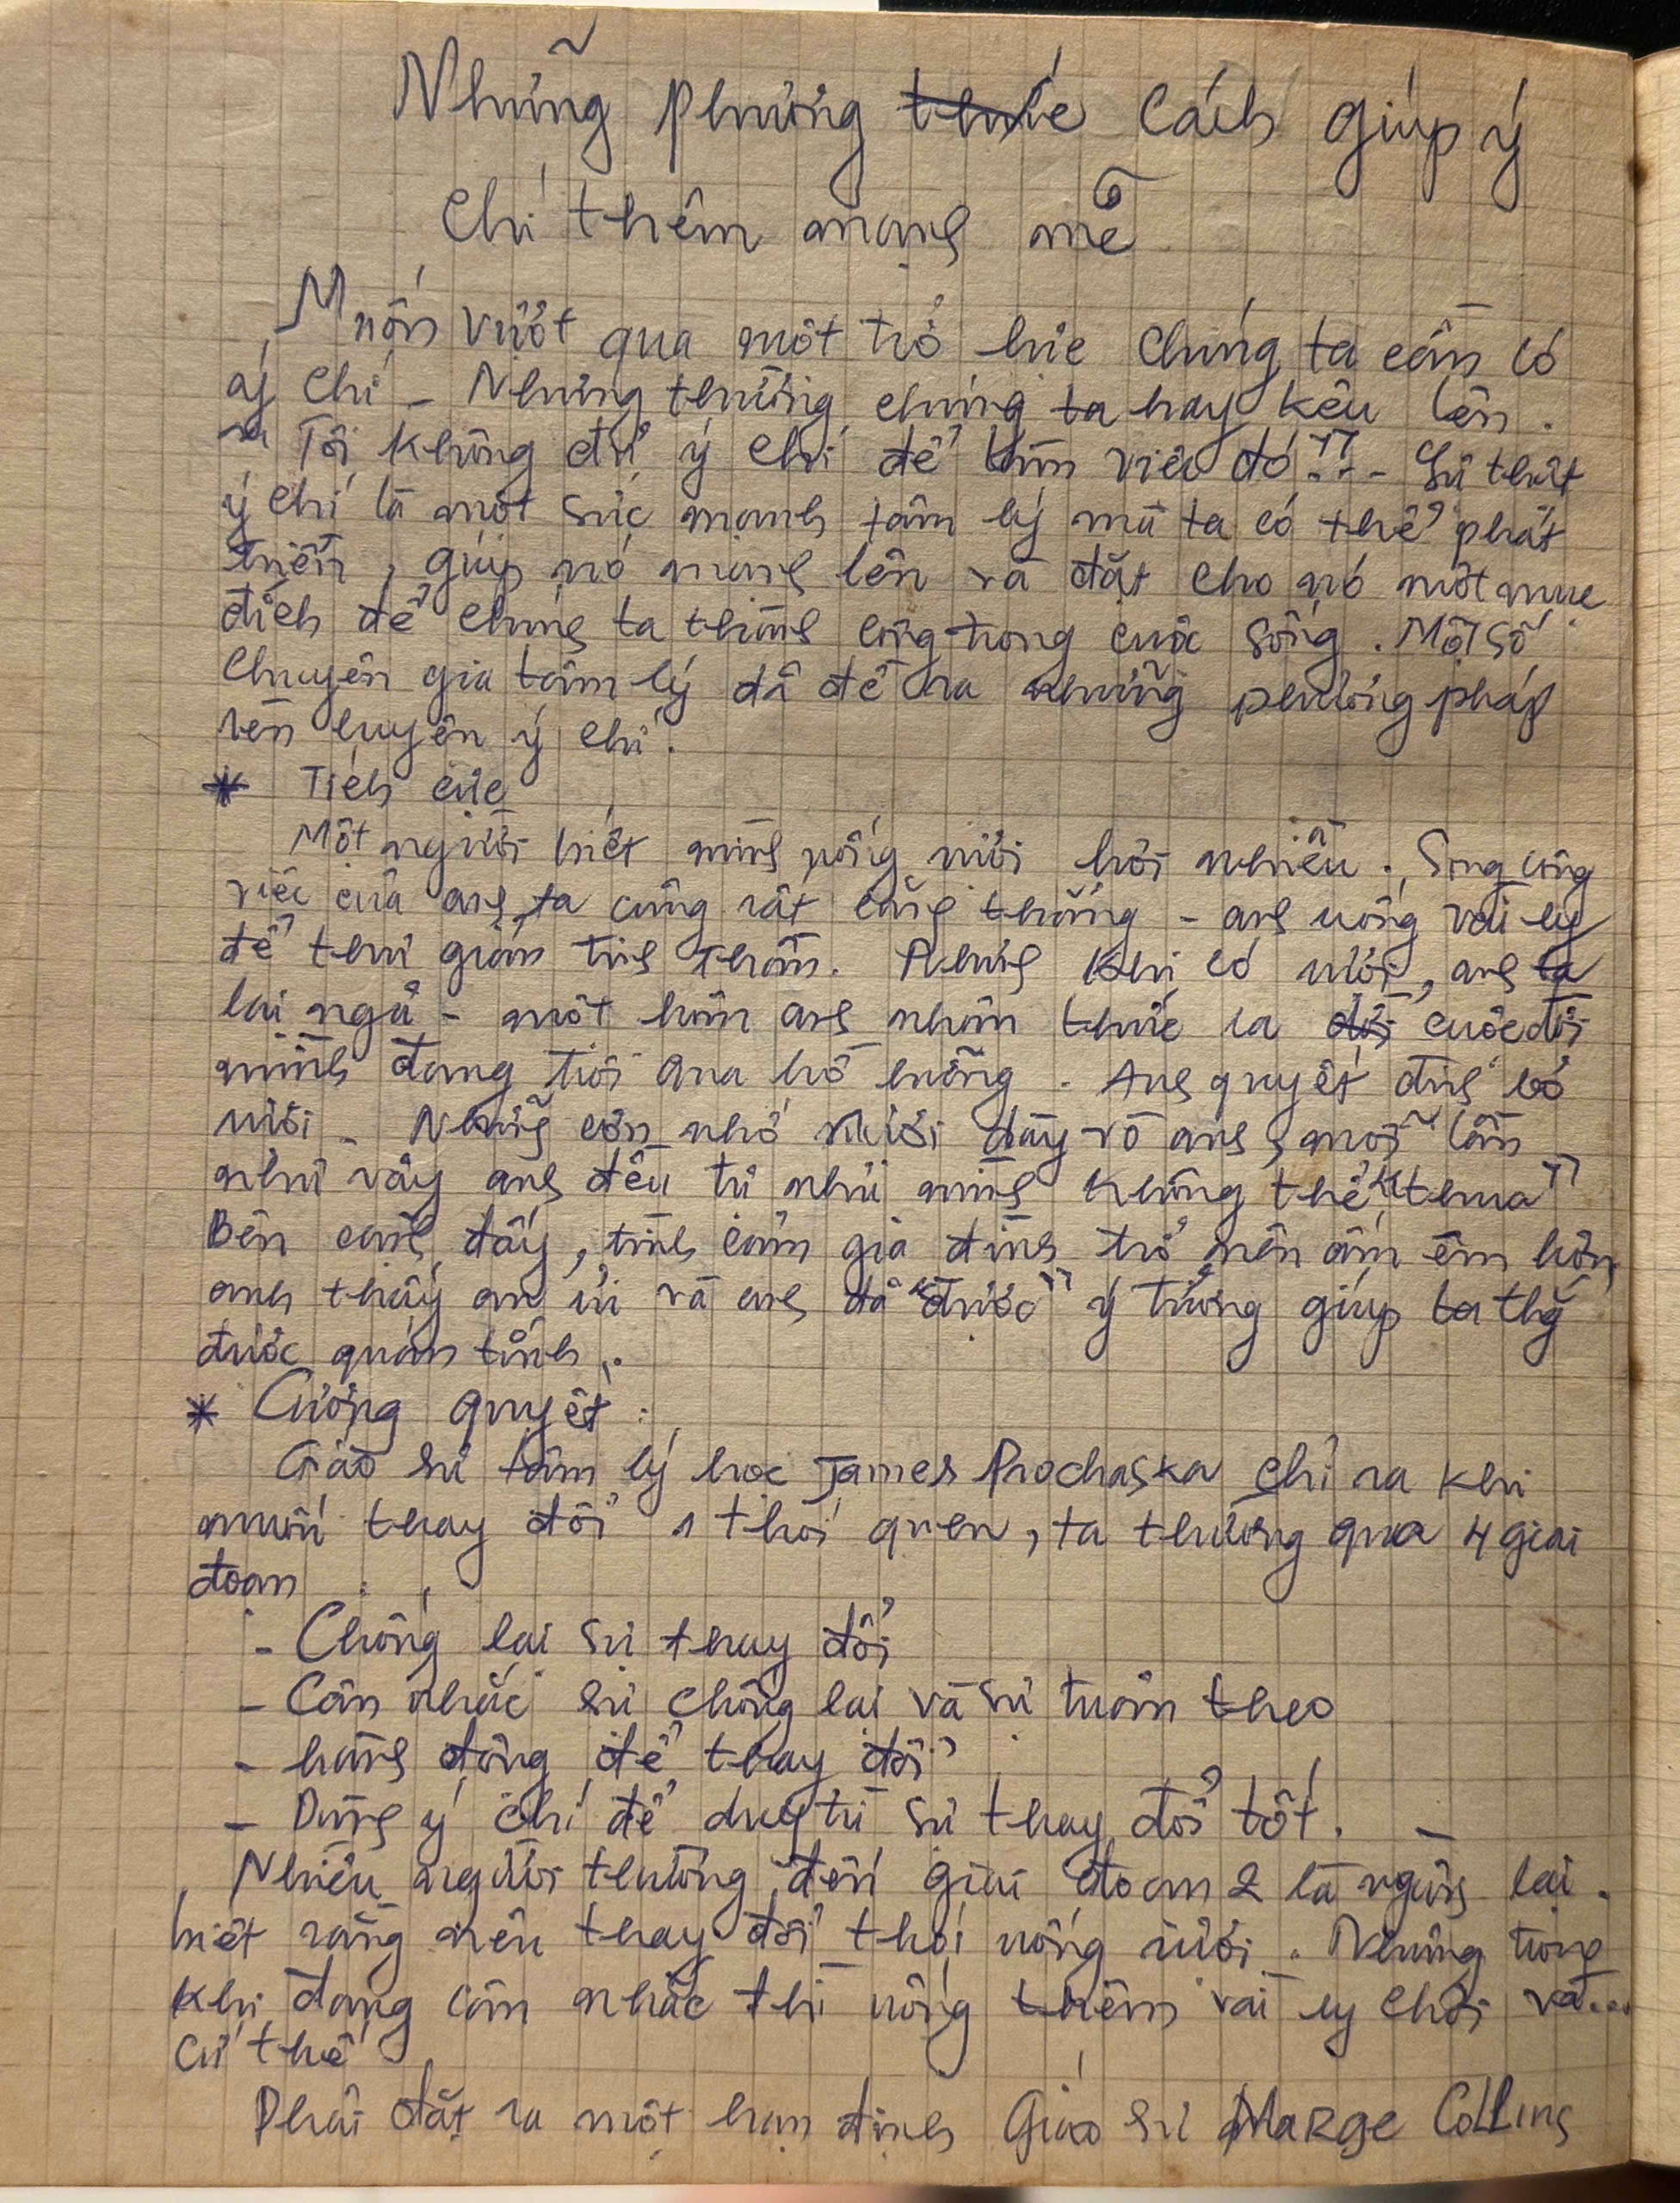 Những phương thức cách giúp ý
chí thêm mạnh mẽ
Muốn vượt qua một trở lực chúng ta cần có
ý chí - Nhưng thường chúng ta hay kêu lên.
"Tôi không đủ ý chí để làm việc đó"!.. - Sự thật
ý chí là một sức mạnh tâm lý mà ta có thể phát
triển, giúp nó mạnh lên và đặt cho nó một mục
đích để chúng ta thành công trong cuộc sống. Một số
chuyên gia tâm lý đã đề ra những phương pháp
rèn luyện ý chí.
* Tích cực
Một người biết mình uống rượi hơi nhiều. Song công
việc của anh ta cũng rất căng thẳng - anh uống vài ly
để thư giản tinh thần. Nhưng khi có rượi, anh ta
lại ngủ - một hôm anh nhận thức ra đời cuộc đời
mình đang trôi qua hố luống. Anh quyết định bỏ
rượi - Nhưng cơn nhớ rượi dày vò anh, mỗi lần
như vậy anh đều tự nhủ mình không thể "thua"
Bên cạnh đấy, tình cảm gia đình trở nên ấm êm hơn,
anh thấy an ủi và anh đã "được" ý tưởng giúp ta thg
được quán tính.
* Cương quyết:
Giáo sư tâm lý học James Prochaska chỉ ra khi
muốn thay đổi 1 thói quen, ta thường qua 4 giai
đoạn :
- Chống lại sự thay đổi
- Cân nhắc sự chống lại và sự tuân theo
- hành động để thay đổi
- Dùng ý chí để duy trì sự thay đổi tốt. -
Nhiều người thường đến giai đoạn 2 là ngừng lại.
biết rằng nên thay đổi thói uống rượi. Nhưng trong
khi đang cân nhắc thì uống thêm vài ly chơi và...
cứ thế
Phải đặt ra một hạn định Giáo sư Marge Collins